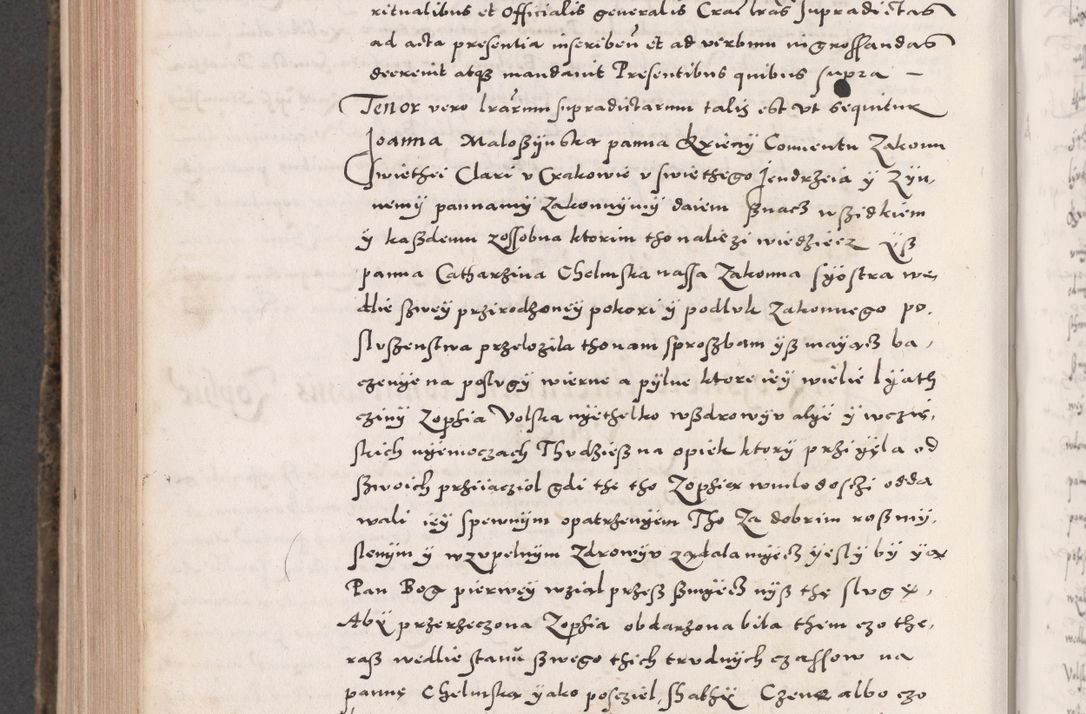 ritualibus et Officialis generalis Crac lras supradictas
ad acta presentia inseriben et ad verbum ingrossandas
decrevit atqz mandavit Presentibus quibus supra –
Tenor vero lrarum supradictarum talis est ut sequitur
Joanna Maloszynska panna Kxieny Conventu Zakonu
Swiethei Clari v Crakowie v swiethego Jendrzeia y Zyn,
nemy pannamy Zakonnymy daiem sznacz wszidkiem
y kaszdemu zossobna ktorim tho nalezi wiedziecz ysz
panna Catharzina Chelmska nassa Zakonna syostra we,
dlie szwey przirodzoney pokori y podluk Zakonnego po,
sluszenstwa przelozila tho nam sproszbam ysz mayącz ba,
czenye na poslugy wierne a pylne ktore iey wielie lyath
cziny Zophia Volska nyethelko wszdrowyu alye y wczies,
skich nyemoczach Thudziesz na opiek ktory przyyela od
szwoich przijacziol gdi the tho Zophia wmlodoschi odda
wali iey spewnym opatrzenyem Tho Za dobrim rosmy,
slenym y wzupelnym Zdrowyu ządala myecz yesly by yą
Pan Bog pierwey wzial przesz szmyercz nysz the slugę,
Aby przerzeczona Zophia obdarzona bila them czo the,
rasz wedlie stanu szwego thich trudnych czassow na
pannę Chelmską yako posczel, shathy Czene albo czo